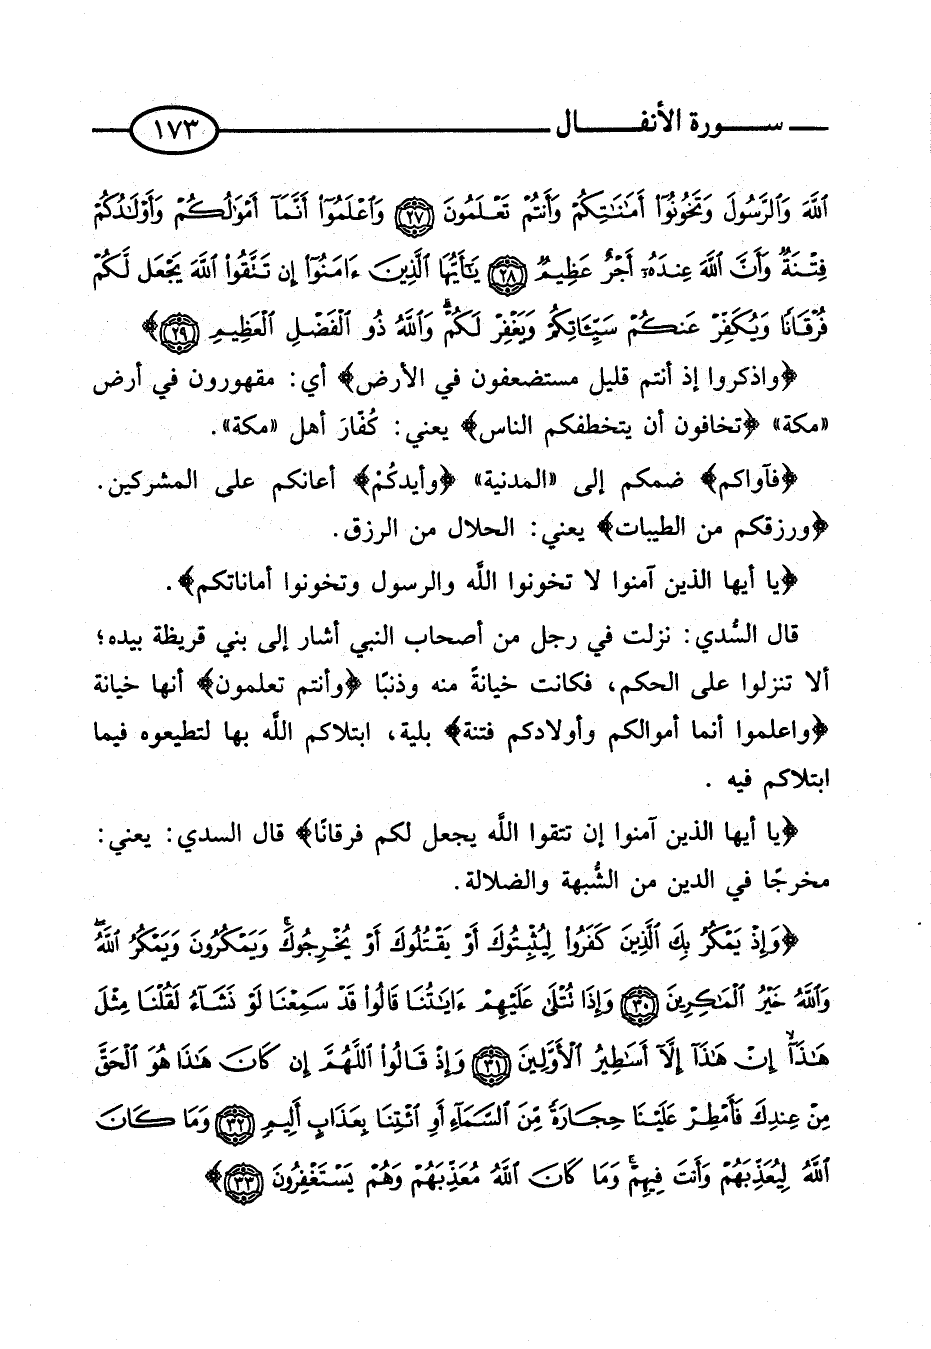 سورة الأنفال ١٧٣
اللَّهَ وَالرَّسُولَ وَتَخُونُوٓا۟ أَمَـٰنَـٰتِكُمْ وَأَنتُمْ تَعْلَمُونَ ﴿٢٧﴾ وَٱعْلَمُوٓا۟ أَنَّمَآ أَمْوَٰلُكُمْ وَأَوْلَـٰدُكُمْ
فِتْنَةٌ وَأَنَّ ٱللَّهَ عِندَهُۥٓ أَجْرٌ عَظِيمٌ ﴿٢٨﴾ يَـٰٓأَيُّهَا ٱلَّذِينَ ءَامَنُوٓا۟ إِن تَتَّقُوا۟ ٱللَّهَ يَجْعَل لَّكُمْ
فُرْقَانًا وَيُكَفِّرْ عَنكُمْ سَيِّـَٔاتِكُمْ وَيَغْفِرْ لَكُمْ ۗ وَٱللَّهُ ذُو ٱلْفَضْلِ ٱلْعَظِيمِ ﴿٢٩﴾﴾
﴿واذكروا إذ أنتم قليل مستضعفون في الأرض﴾ أي: مقهورون في أرض
«مكة» ﴿تخافون أن يتخطفكم الناس﴾ يعني: كُفّارَ أهل «مكة».
﴿فآواكم﴾ ضمكم إلى «المدنية» ﴿وأيدكُمْ﴾ أعانكم على المشركين.
﴿ورزقكم من الطيبات﴾ يعني: الحلال من الرزق.
﴿يا أيها الذين آمنوا لا تخونوا اللَّه والرسول وتخونوا أماناتكم﴾.
قال السُّدي: نزلت في رجل من أصحاب النبي أشار إلى بني قريظة بيده؛
ألا تنزلوا على الحكم، فكانت خيانةً منه وذنبًا ﴿وأنتم تعلمون﴾ أنها خيانة
﴿واعلموا أنما أموالكم وأولادكم فتنة﴾ بلية، ابتلاكم اللَّه بها لتطيعوه فيما
ابتلاكم فيه .
﴿يا أيها الذين آمنوا إن تتقوا اللَّه يجعل لكم فرقانًا﴾ قال السدي: يعني:
مخرجًا في الدين من الشُّبهة والضلالة.
﴿وَإِذْ يَمْكُرُ بِكَ ٱلَّذِينَ كَفَرُوا۟ لِيُثْبِتُوكَ أَوْ يَقْتُلُوكَ أَوْ يُخْرِجُوكَ ۚ وَيَمْكُرُونَ وَيَمْكُرُ ٱللَّهُ ۖ
وَٱللَّهُ خَيْرُ ٱلْمَـٰكِرِينَ ﴿٣٠﴾ وَإِذَا تُتْلَىٰ عَلَيْهِمْ ءَايَـٰتُنَا قَالُوا۟ قَدْ سَمِعْنَا لَوْ نَشَآءُ لَقُلْنَا مِثْلَ
هَـٰذَآ ۙ إِنْ هَـٰذَآ إِلَّآ أَسَـٰطِيرُ ٱلْأَوَّلِينَ ﴿٣١﴾ وَإِذْ قَالُوا۟ ٱللَّهُمَّ إِن كَانَ هَـٰذَا هُوَ ٱلْحَقَّ
مِنْ عِندِكَ فَأَمْطِرْ عَلَيْنَا حِجَارَةً مِّنَ ٱلسَّمَآءِ أَوِ ٱئْتِنَا بِعَذَابٍ أَلِيمٍ ﴿٣٢﴾ وَمَا كَانَ
ٱللَّهُ لِيُعَذِّبَهُمْ وَأَنتَ فِيهِمْ ۚ وَمَا كَانَ ٱللَّهُ مُعَذِّبَهُمْ وَهُمْ يَسْتَغْفِرُونَ ﴿٣٣﴾﴾